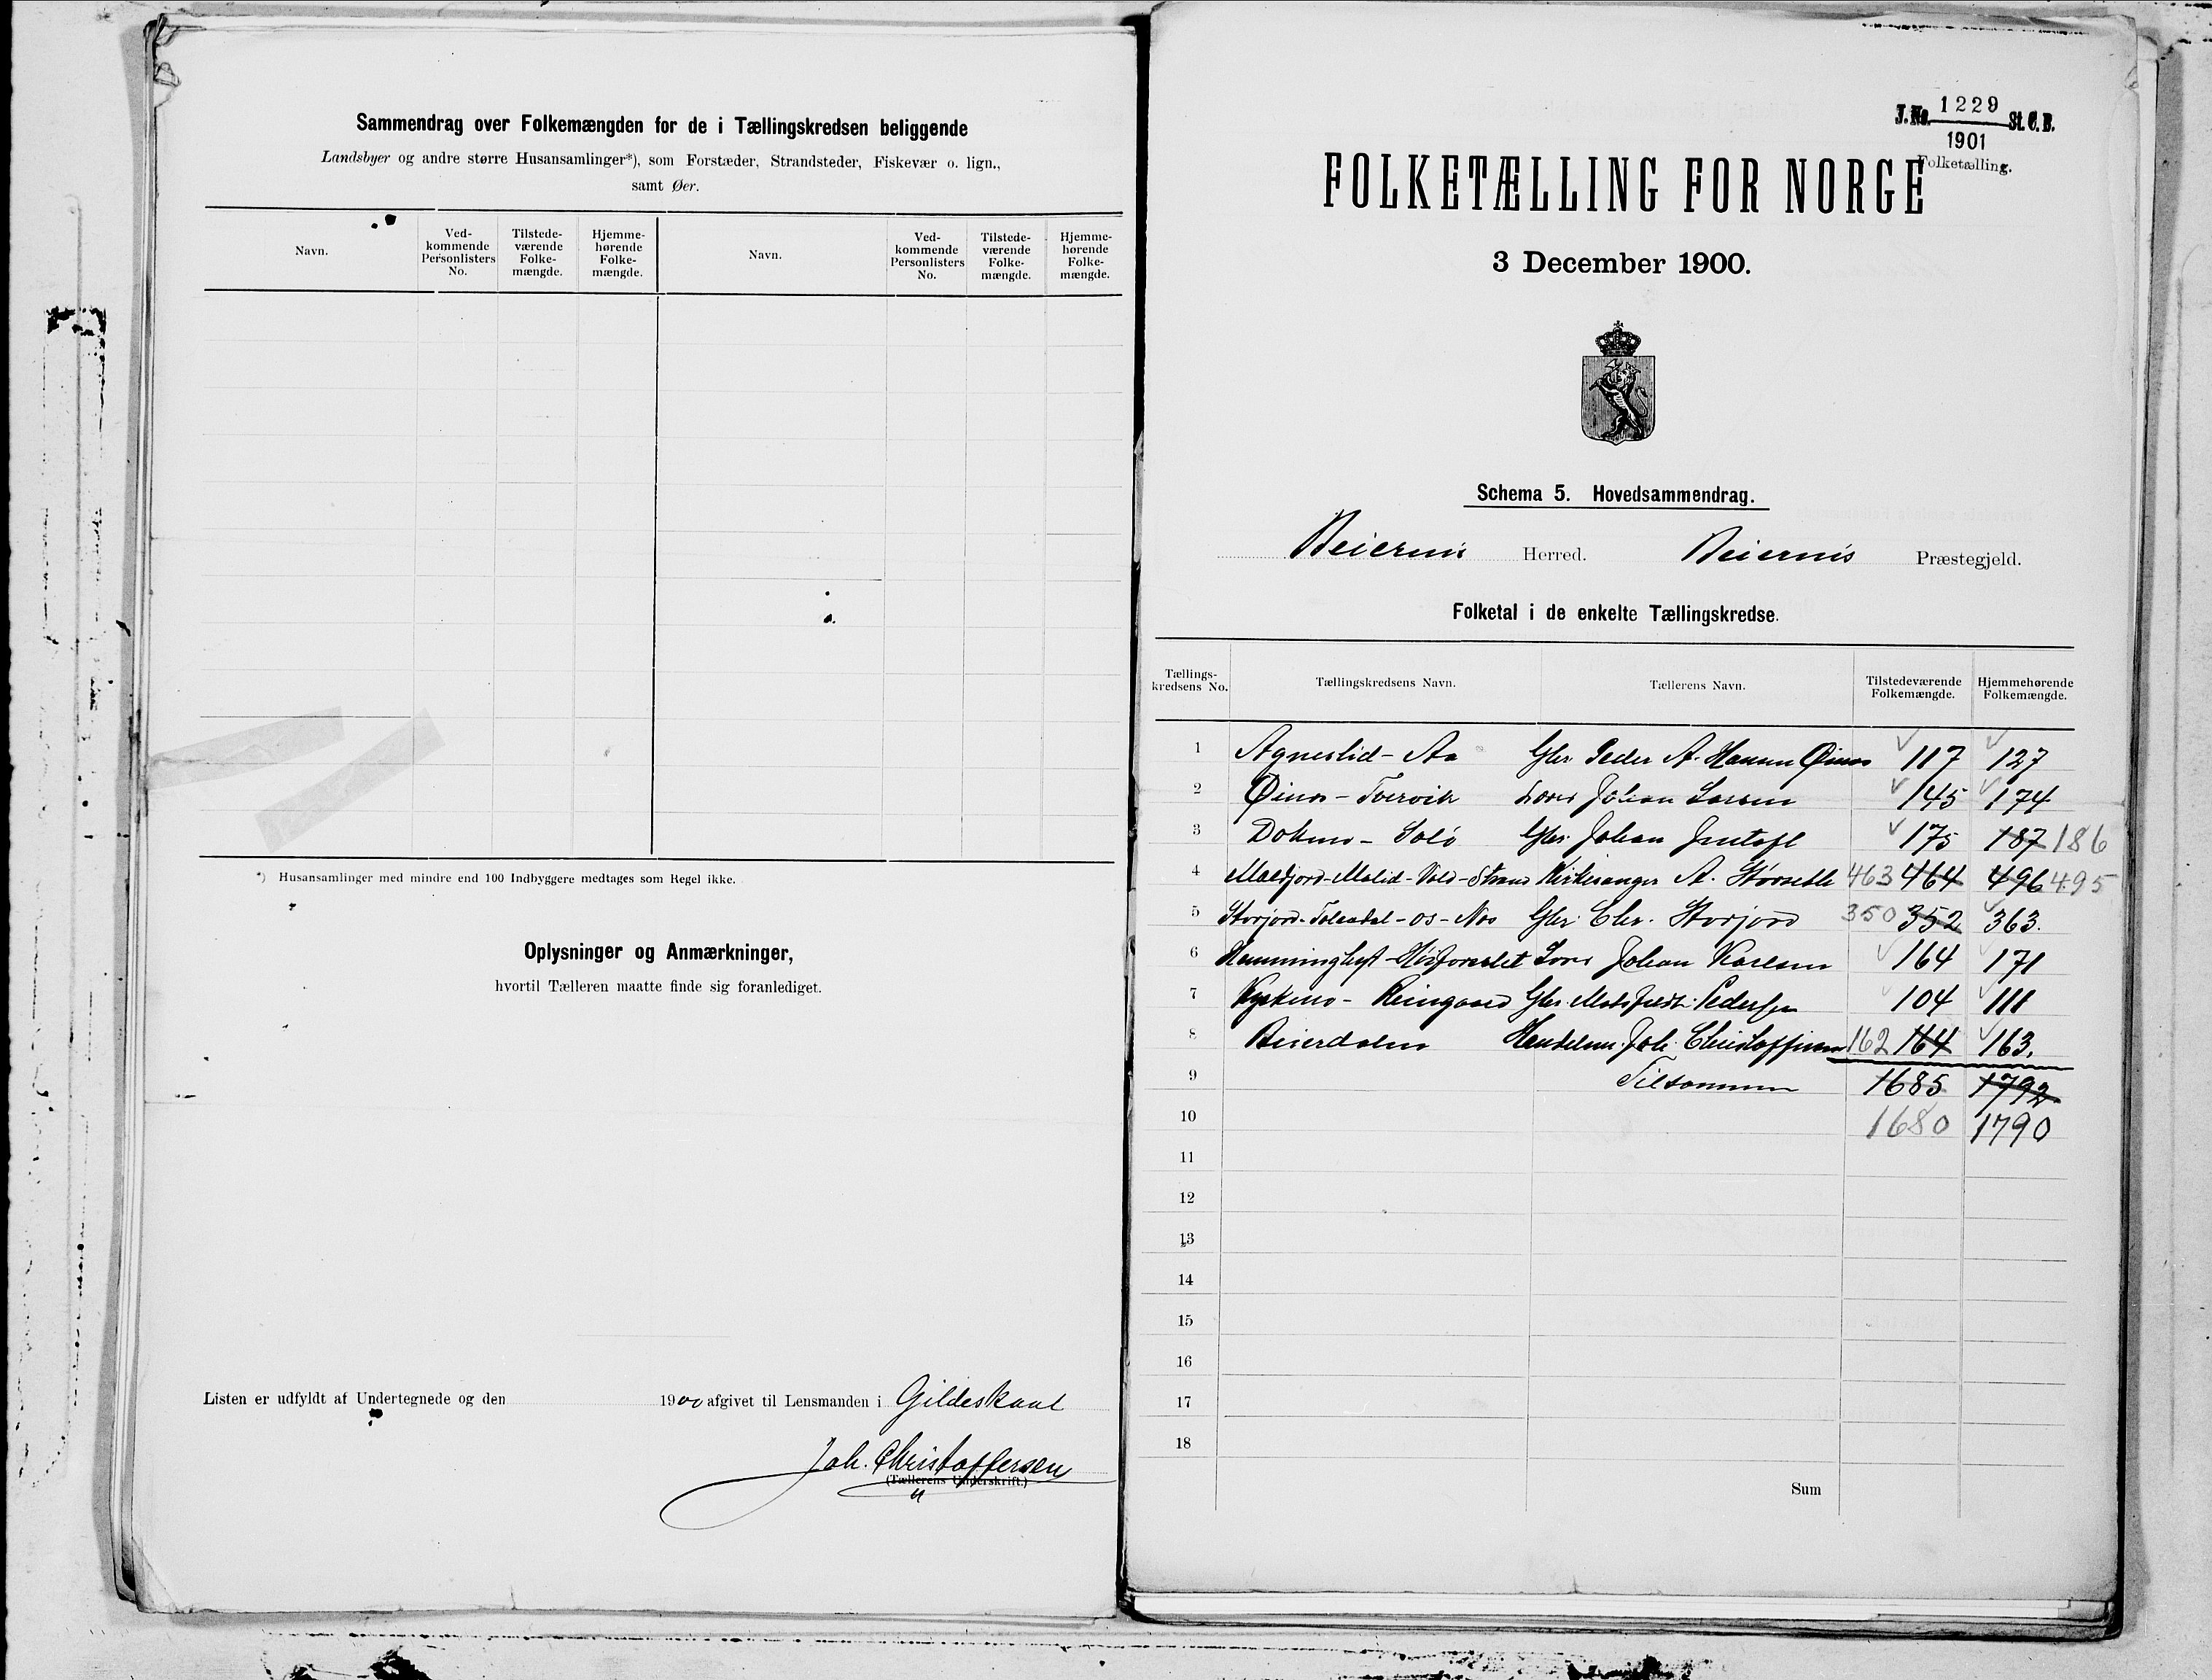 Sammendrag over Folkemængden for de i Tællingskredsen beliggende
Landsbyer og andre større Husansamlinger*), som Forstæder, Strandsteder, Fiskevær o. lign.,
samt Øer.
Navn. Ved-kommende Personlisters No. Tilstede-værende Folke-mængde. Hjemme-hørende Folke-mængde. Navn. Ved-kommende Personlisters No. Tilstede-værende Folke-mængde. Hjemme-hørende Folke-mængde.
*) Husansamlinger med mindre end 100 Indbyggere medtages som Regel ikke.
Oplysninger og Anmærkninger,
hvortil Tælleren maatte finde sig foranlediget.
Listen er udfyldt af Undertegnede og den 1900 afgivet til Lensmanden i Gildeskaal
Joh. Christoffersen
(Tællerens Underskrift.)
J. No. 1229 St. C. B.
1901
Folketælling.
FOLKETÆLLING FOR NORGE
3 December 1900.
Schema 5. Hovedsammendrag.
Beiernis Herred. Beiernis Præstegjeld.
Folketal i de enkelte Tællingskredse.
Tællings-kredsens No. Tællingskredsens Navn. Tællerens Navn. Tilstedeværende Folkemængde. Hjemmehørende Folkemængde.
1 Agneslid - Aa Gbr Peder A. Hansen 117 127
2 Øines - Tvervik Johan Larsen 145 174
3 Dokmo - Solö Gbr. Johan 175 187 186
4 Moldjord - Molid - Vold - Strand Kirkesanger A. 463 464 496 495
5 Storjord - Tolladal - os - Nes Gbr. Chr. Storjord 350 352 363.
6 Johan Karlsen 164 171
7 Gbr. Pedersen 104 111
8 Beierdalen Handelsm. Joh. Christoffersen 162 164 163.
9 Tilsammen 1685 1792
10 1680 1790
11
12
13
14
15
16
17
18
Sum